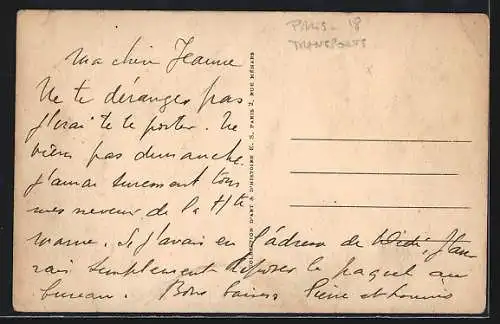 PARIS - 18
TRANSPORTS
Ma chère Jeanne
Ne te déranges pas
j'irai te le porter. Ne
viens pas dimanche
j'aurai surement tous
mes neveux de la Hte
Marne. Si j'avais eu l'adresse de Didi j'au
rais simplement déposer le paquet au
bureau. Bons baisers Pierre et
COLLECTION D'ART & D'HISTOIRE E. S., PARIS 2, RUE MÉHARS